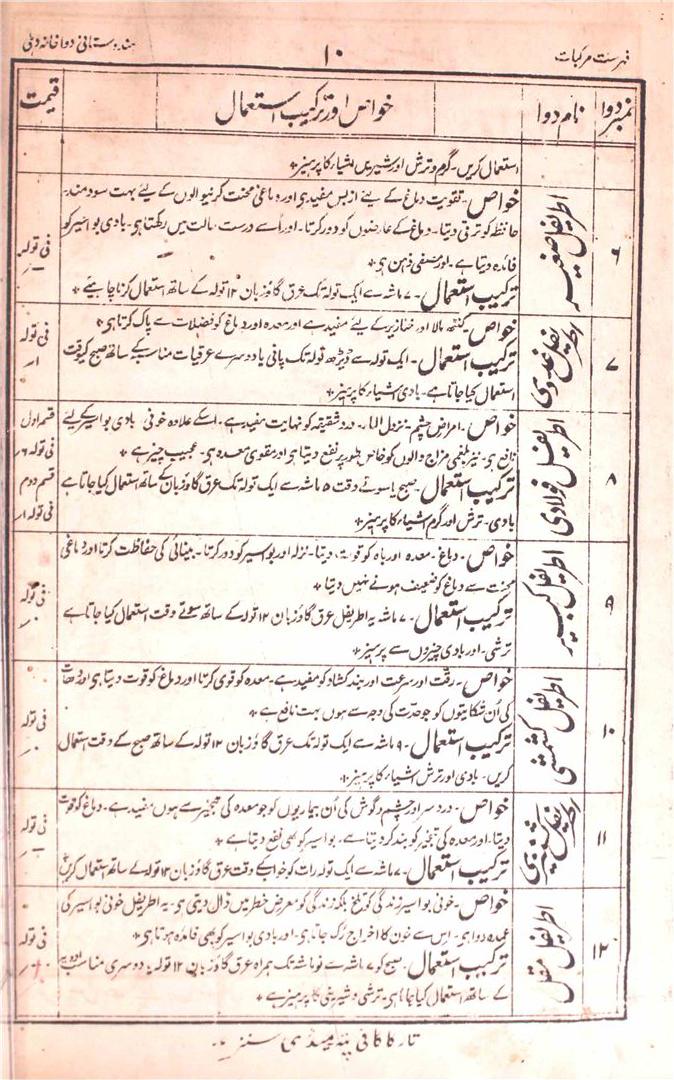 فہرست مرکبات ۱۰ ہندوستانی دواخانہ دہلی
نمبر دوا نام دوا خواص اور ترکیب استعمال قیمت
استعمال کریں۔ گرم و ترش اور شیریں اشیاء کا پرہیز ٭
۶ اطریفل صغیر خواص۔ تقویت دماغ کے لیے از بس مفید ہی اور دماغی محنت کرنیوالوں کے لیے بہت سودمند۔
حافظہ کو ترقی دیتا۔ دماغ کے عارضوں کو دور کرتا۔ اور اُسے درست حالت میں رکھتا ہی۔ بادی بواسیر کو
فائدہ دیتا ہے۔ اور مصفی ذہن ہی ٭ فی تولہ
ترکیب استعمال۔ ۷ ماشہ سے ایک تولہ تک عرق گاؤزبان ۱۲ تولہ کے ساتھ استعمال کرنا چاہیئے ٭
۷ اطریفل غددی خواص۔ کنٹھ مالا اور خنازیر کے لیے مفید ہے اور معدہ اور دماغ کو فضلات سے پاک کرتا ہی ٭
ترکیب استعمال۔ ایک تولہ سے ڈیڑھ تولہ تک پانی یا دوسرے عرقیات مناسب کے ساتھ صبح کیوقت فی تولہ ۱ر
استعمال کیا جاتا ہے۔ بادی اشیاء کا پرہیز ٭
۸ اطریفل فولادی خواص۔ امراض چشم۔ نزول الماء۔ درد شقیقہ کو نہایت مفید ہے۔ اسکے علاوہ خونی بادی بواسیر کے لیے قسم اول
نافع ہی۔ نیز بلغمی مزاج والوں کو خاص طور پر نفع دیتا ہی اور مقوی معدہ ہی۔ عجیب چیز ہے ٭ فی تولہ ۶ر
ترکیب استعمال۔ صبح یا سوتے وقت ۵ ماشہ سے ایک تولہ تک عرق گاؤزبان کے ساتھ استعمال کیا جاتا ہے قسم دوم
بادی۔ ترش اور گرم اشیاء کا پرہیز ٭ فی تولہ ۱ر
۹ اطریفل کبیر خواص۔ دماغ۔ معدہ اور باہ کو قوت دیتا۔ نزلہ اور بواسیر کو دور کرتا۔ بینائی کی حفاظت کرتا اور دماغی
محنت سے دماغ کو ضعیف ہونے نہیں دیتا ٭ فی تولہ
ترکیب استعمال۔ ۷ ماشہ یہ اطریفل عرق گاؤزبان ۱۲ تولہ کے ساتھ سوتے وقت استعمال کیا جاتا ہے
ترشی۔ اور بادی چیزوں سے پرہیز ٭
۱۰ اطریفل کشمشی خواص۔ رقت اور سرعت اور بند کشاد کو مفید ہے۔ معدہ کو قوی کرتا اور دماغ کو قوت دیتا ہی اور دھات
کی اُن شکایتوں کو جو حدّت کی وجہ سے ہوں بہت نافع ہے ٭ فی تولہ
ترکیب استعمال۔ ۹ ماشہ سے ایک تولہ تک عرق گاؤزبان ۱۲ تولہ کے ساتھ صبح کے وقت استعمال
کریں۔ بادی اور ترش اشیاء کا پرہیز ٭
۱۱ اطریفل کشنیزی خواص۔ درد سر اور چشم و گوش کی اُن بیماریوں کو جو معدہ کی تبخیر سے ہوں مفید ہے۔ دماغ کو قوت
دیتا۔ اور معدہ کی تبخیر کو بند کر دیتا ہے۔ بواسیر کو بھی نفع دیتا ہے ٭ فی تولہ
ترکیب استعمال۔ ۷ ماشہ سے ایک تولہ رات کو خواب کے وقت عرق گاؤزبان ۱۲ تولہ کے ساتھ استعمال کریں
۱۲ اطریفل مقل خواص۔ خونی بواسیر زندگی کو تلخ بلکہ زندگی کو معرض خطر میں ڈال دیتی ہی۔ یہ اطریفل خونی بواسیر کی
عمدہ دوا ہی۔ اس سے خون کا اخراج رُک جاتا ہی۔ اور بادی بواسیر کو بھی فائدہ ہوتا ہی ٭ فی تولہ
ترکیب استعمال۔ صبح کو ۷ ماشہ سے نو ماشہ تک ہمراہ عرق گاؤزبان ۱۲ تولہ یا دوسری مناسب ادویہ
کے ساتھ استعمال کیا جاتا ہی۔ ترشی و شیرینی کا پرہیز ہے ٭
تار کا کافی پتہ میڈی سنز